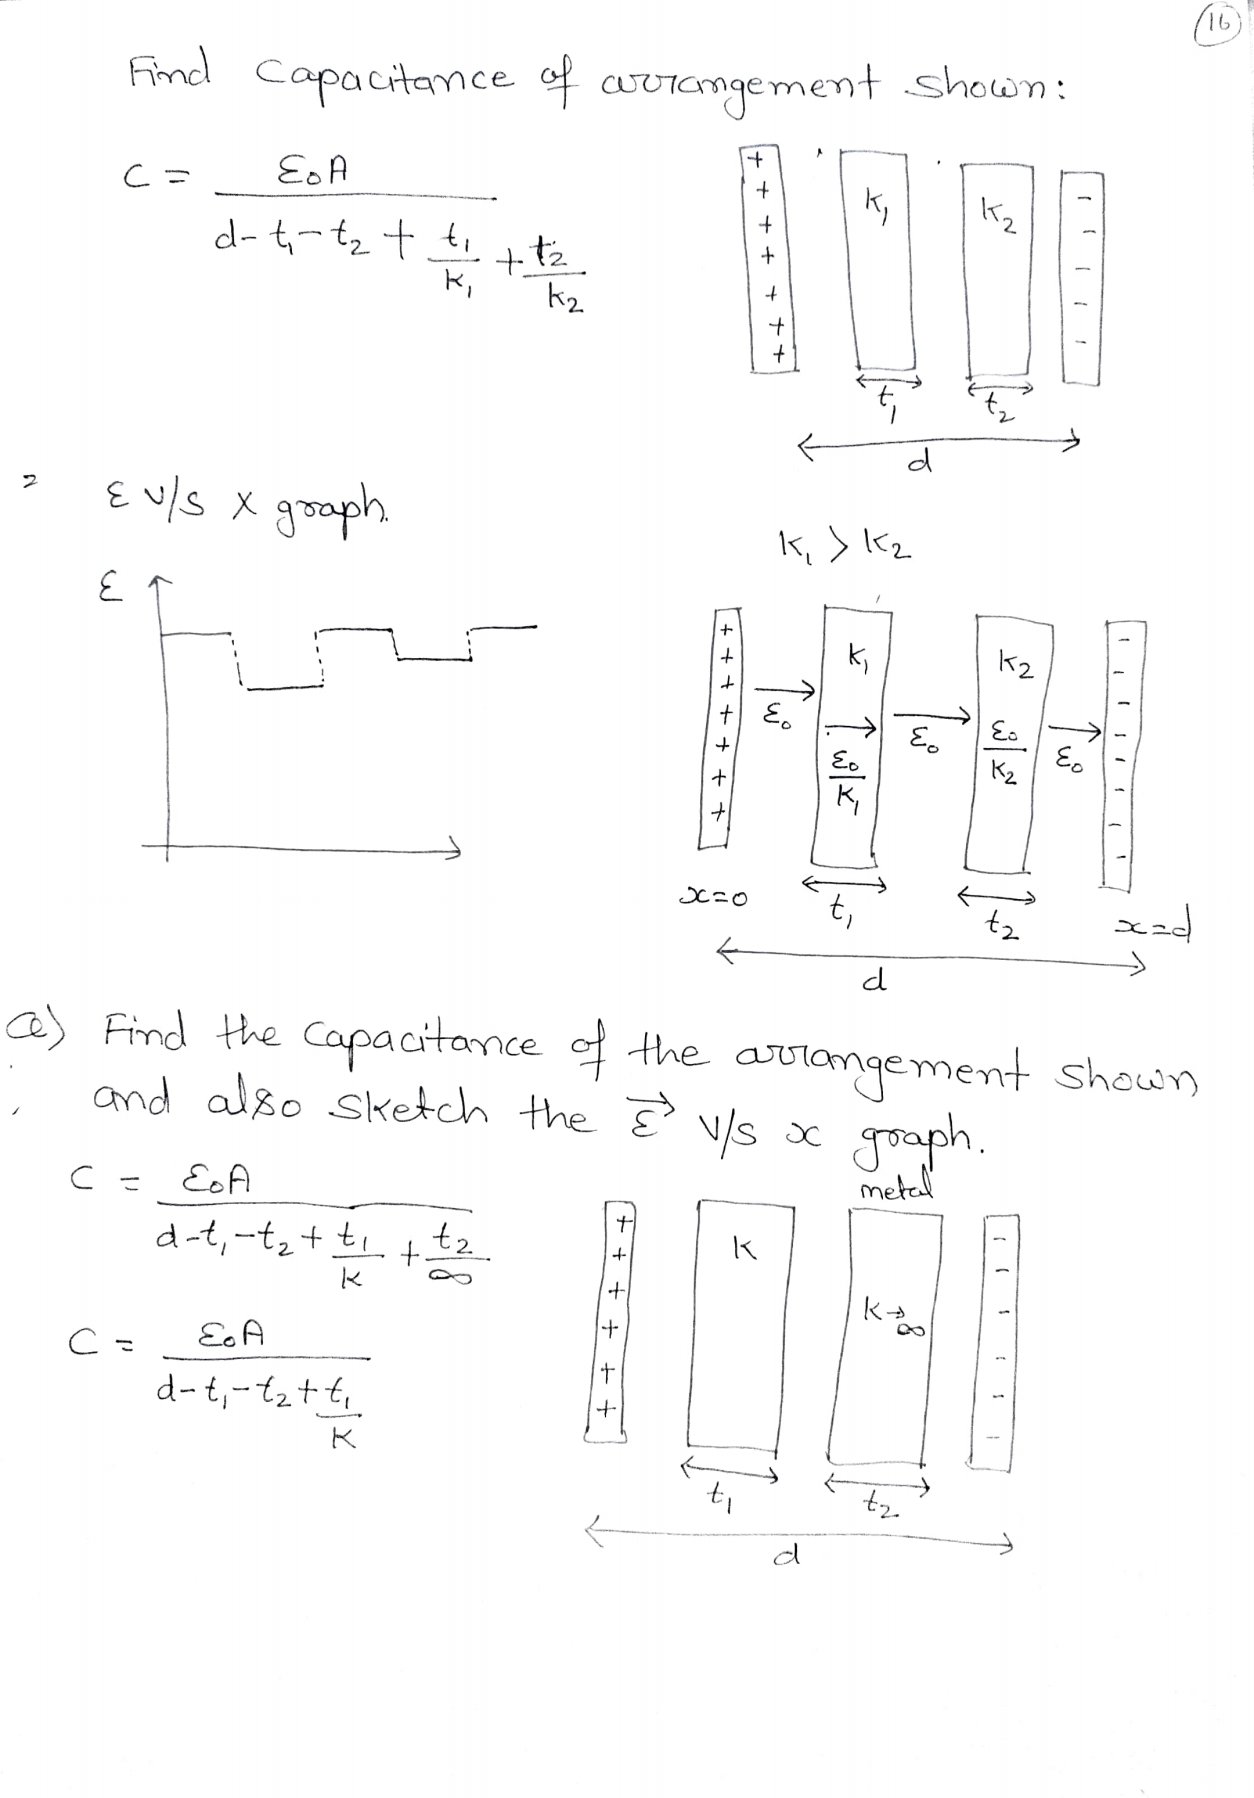 16
Find Capacitance of arrangement shown:
C = ε₀A / (d - t₁ - t₂ + t₁/K₁ + t₂/K₂)
+ + + + + + +
K₁
K₂
- - - - - -
t₁
t₂
d
2
ε v/s x graph.
ε
K₁ > K₂
+ + + + + + +
ε₀
K₁
ε₀/K₁
ε₀
K₂
ε₀/K₂
ε₀
- - - - - - - -
x=0
t₁
t₂
x=d
d
Q) Find the Capacitance of the arrangement shown
and also sketch the ε⃗ v/s x graph.
C = ε₀A / (d - t₁ - t₂ + t₁/K + t₂/∞)
metal
+ + + + + +
K
K→∞
- - - - - -
C = ε₀A / (d - t₁ - t₂ + t₁/K)
t₁
t₂
d